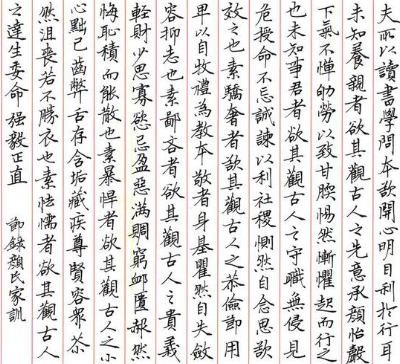 夫所以讀書學問本欲開心明目利扵行耳
未知養親者欲其觀古人之先意承顏怡聲
下氣不憚劬勞以致甘腝惕然慚懼起而行之
也未知事君者欲其觀古人之守職無侵見
危授命不忘誠諫以利社稷惻然自念思欲
效之也素驕奢者欲其觀古人之恭儉節用
卑以自牧禮為教本敬者身基瞿然自失斂
容抑志也素鄙吝者欲其觀古人之貴義
輕財少思寡慾忌盈惡滿賙窮卹匱赧然
悔恥積而能散也素暴悍者欲其觀古人之小
心黜己齒弊舌存含垢藏疾尊賢容眾苶
然沮喪若不勝衣也素怯懦者欲其觀古人
之達生委命強毅正直 節錄顏氏家訓